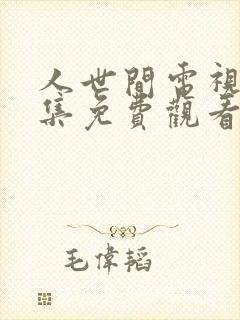 人世間電視
集免費觀看
毛偉韜